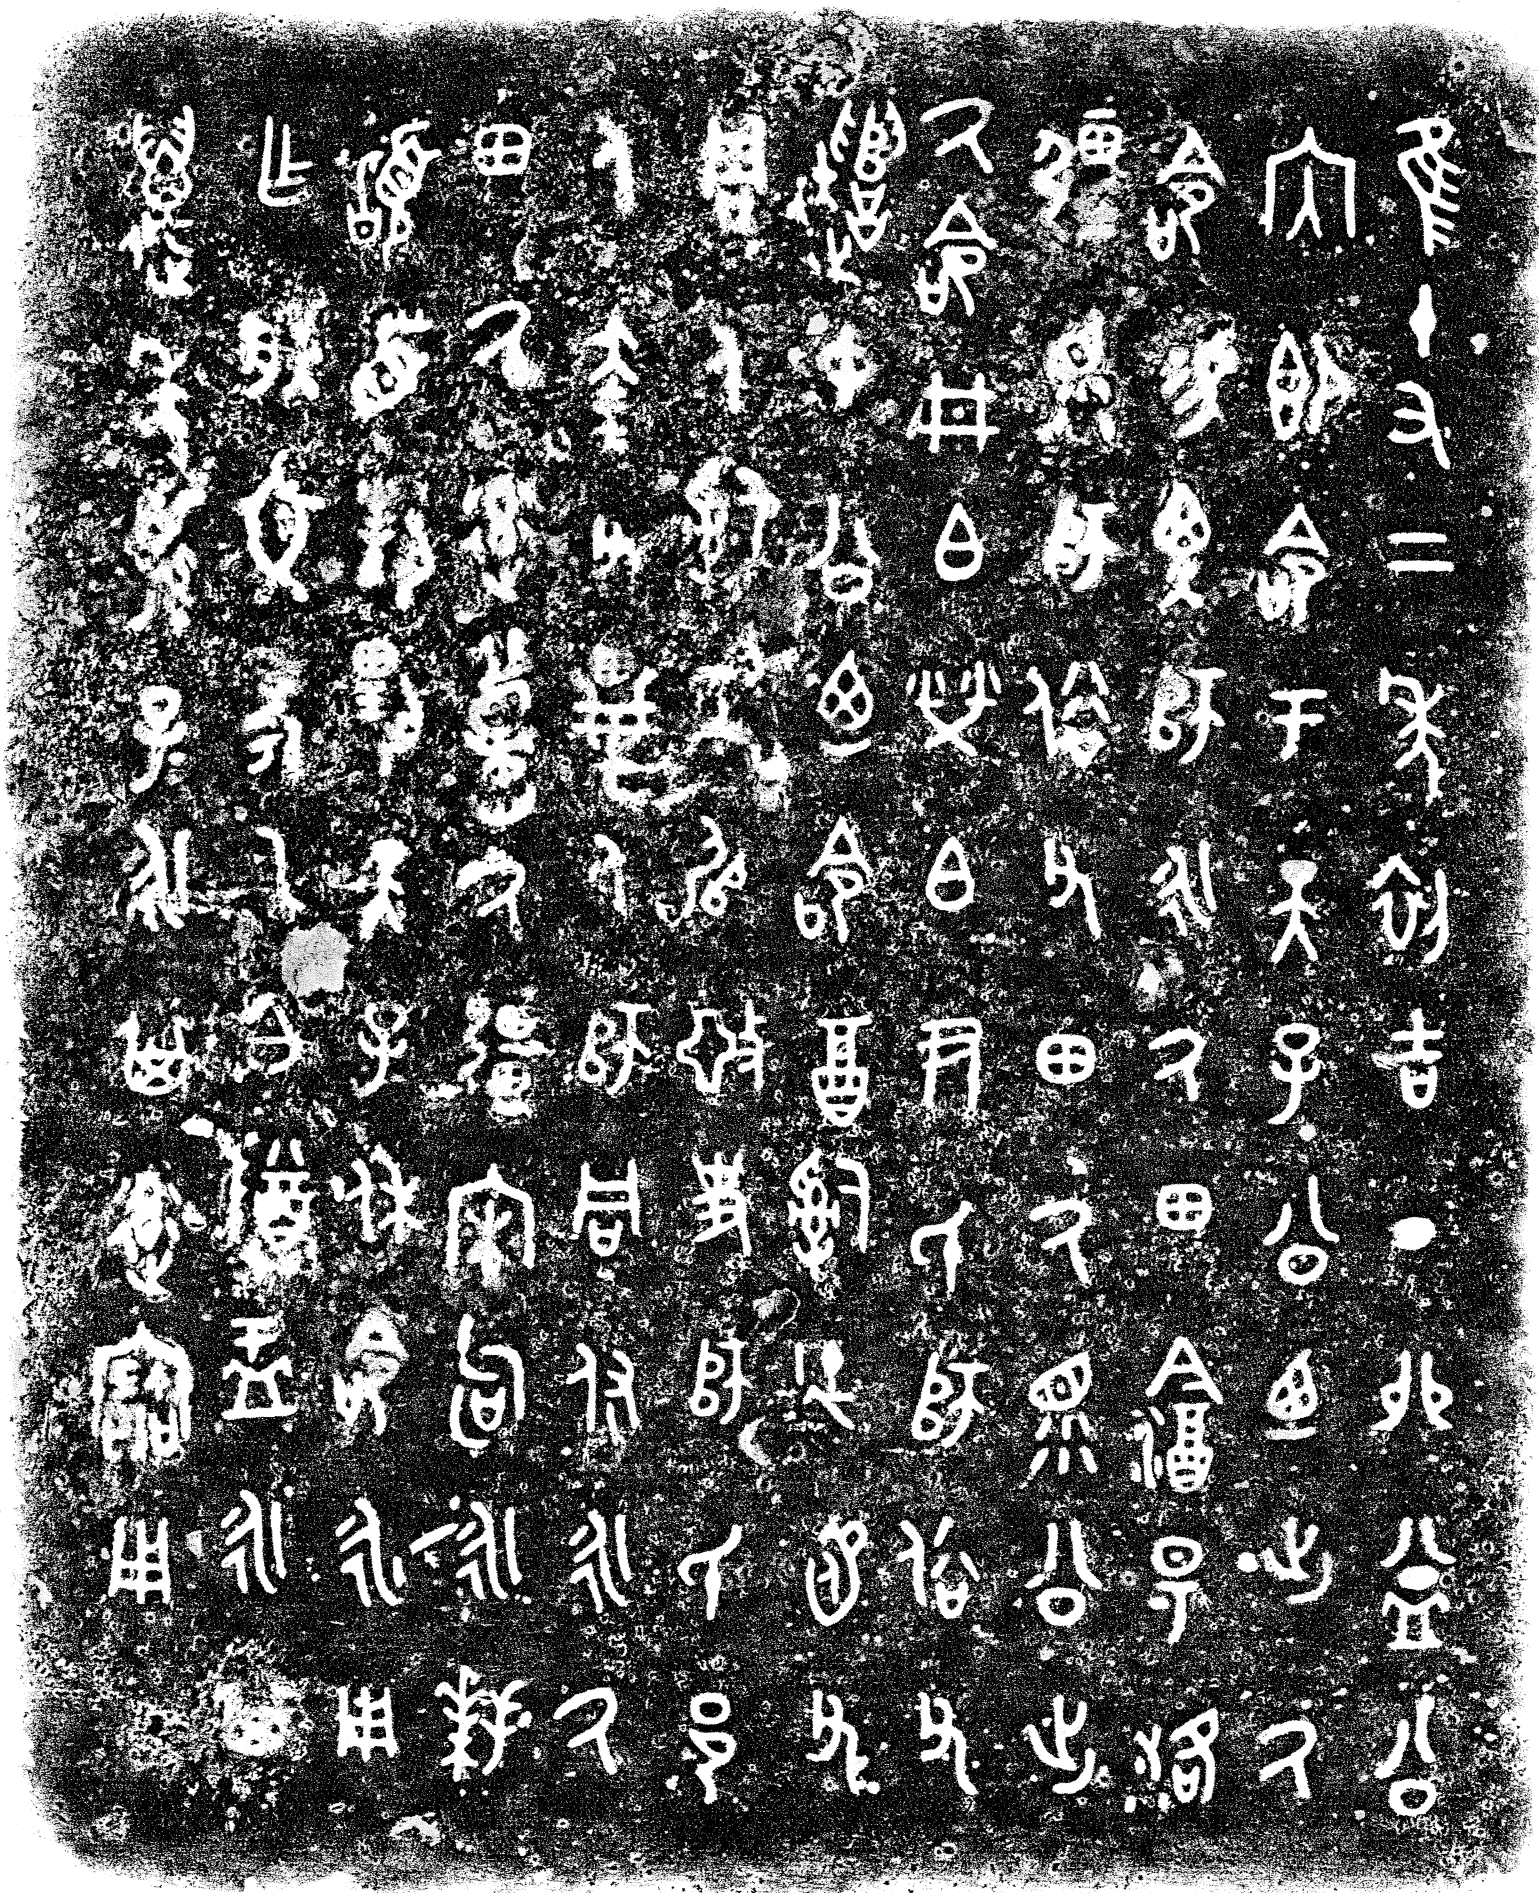 隹十又二年初吉丁卯益公
內即命于天子公迺出氒
命易畀師永氒田陰昜洛
疆眔師俗父田氒眔公出
氒命井白榮白尹氏師俗父
遣中公迺命酉𤔲徒𠭯父
周人𤔲工眉亞史師氏邑
人奎父畢人師同付永氒
田氒率履氒疆宋句永拜
𩒨首對揚天子休命永用
乍朕文考乙白尊盂永其
萬年孫=子=永其率寶用